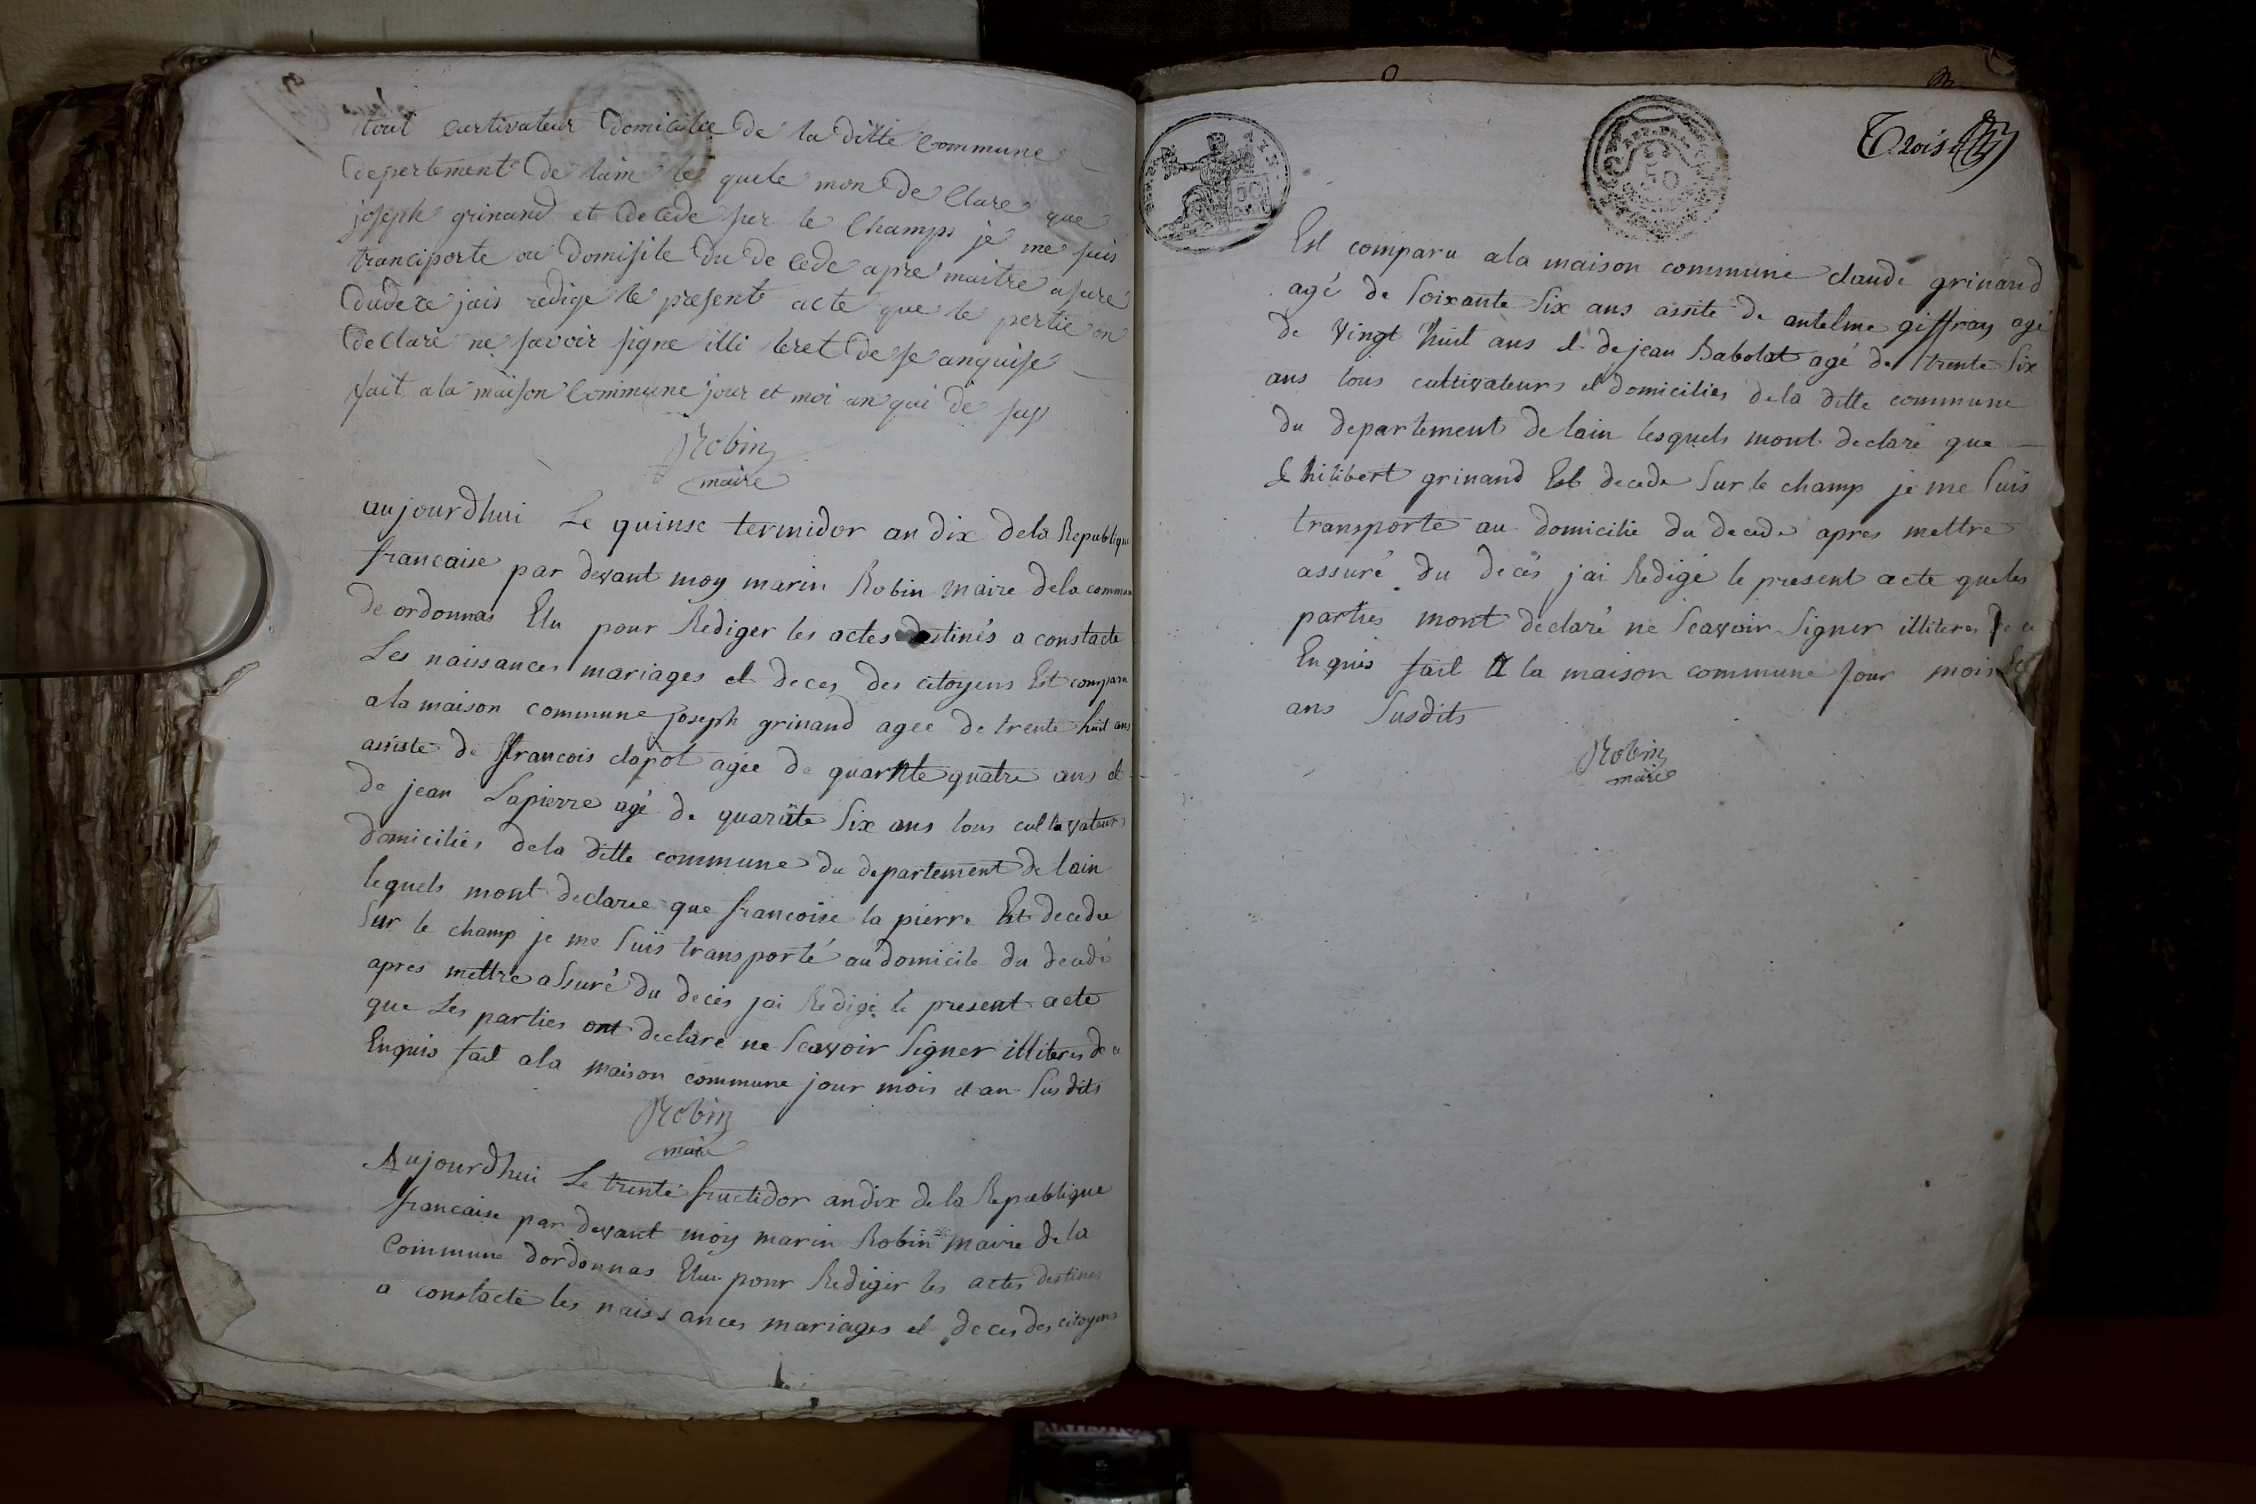 tout curtivateur domicilie de la ditte Commune
depertement de lain le quele mon de Clare que
joseph grinand et decede sur le Champs je me suis
tranciporte ou domisile du de cede apre maitre asuré
dudece jais redige le present acte que le pertie on
declare ne savoir signe illi teret de se anquise
fait a la maison Commune jour et moi an qui de sus
Robin
maire
aujourdhui Le quinse termidor an dix dela Republique
francaise par devant moy marin Robin maire dela commune
de ordonnas Elu pour Rediger les actes destinés a constacte
Les naissances mariages et deces des citoyens Est comparu
a la maison commune joseph grinand agee de trente huit ans
assiste de francois clapot agée de quarnte quatre ans et
de jean Lapierre agé de quarüte Six ans tous cultivateurs
domiciliés dela ditte commune du departement de lain
lequels mont declaree que francoise la pierre Est decedee
Sur le champ je me Suis transporté au domicile du decedé
apres mettre assuré du decès jai Redigé le present acte
que Les parties ont declare ne Scavoir Signer illiteres de ce
Enquis fait ala maison commune jour mois et an Susdits
Robin
maire
Aujourdhui Le trente fructidor an dix de la Republique
francaise par devant moy marin Robin maire de la
Commune dordonnas Elu pour Rediger les actes destines
a constacte les naissances mariages et deces des citoyens
Trois
50
Est comparu a la maison commune claude grinand
agé de Soixante Six ans assite de antelme giffray agé
de Vingt huit ans et de jean Babolat agé de trente Six
ans tous cultivateurs et domiciliés dela ditte commune
du departement de lain lesquels mont declaré que
philibert grinand Est decede Sur le champ je me Suis
transporte au domicilie du decede apres mettre
assuré du decès jai Redigé le present acte que les
parties mont declaré ne Scavoir Signer illiteres de ce
Enquis fait a la maison commune jour mois
ans Susdits
Robin
maire